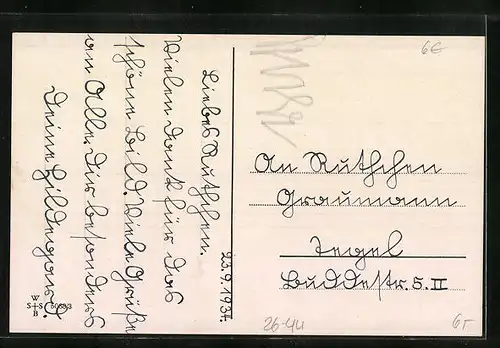 Liebes Ruthchen.
Vielen Dank für das
schöne Bild. Viele Grüße
an Alle, Dir besonders
Deine Hildegard.
23.9.1931.
An Ruthchen
Graumann
Tegel
Buddestr. 5. II
W
S+S
B
26-44
6T
6€